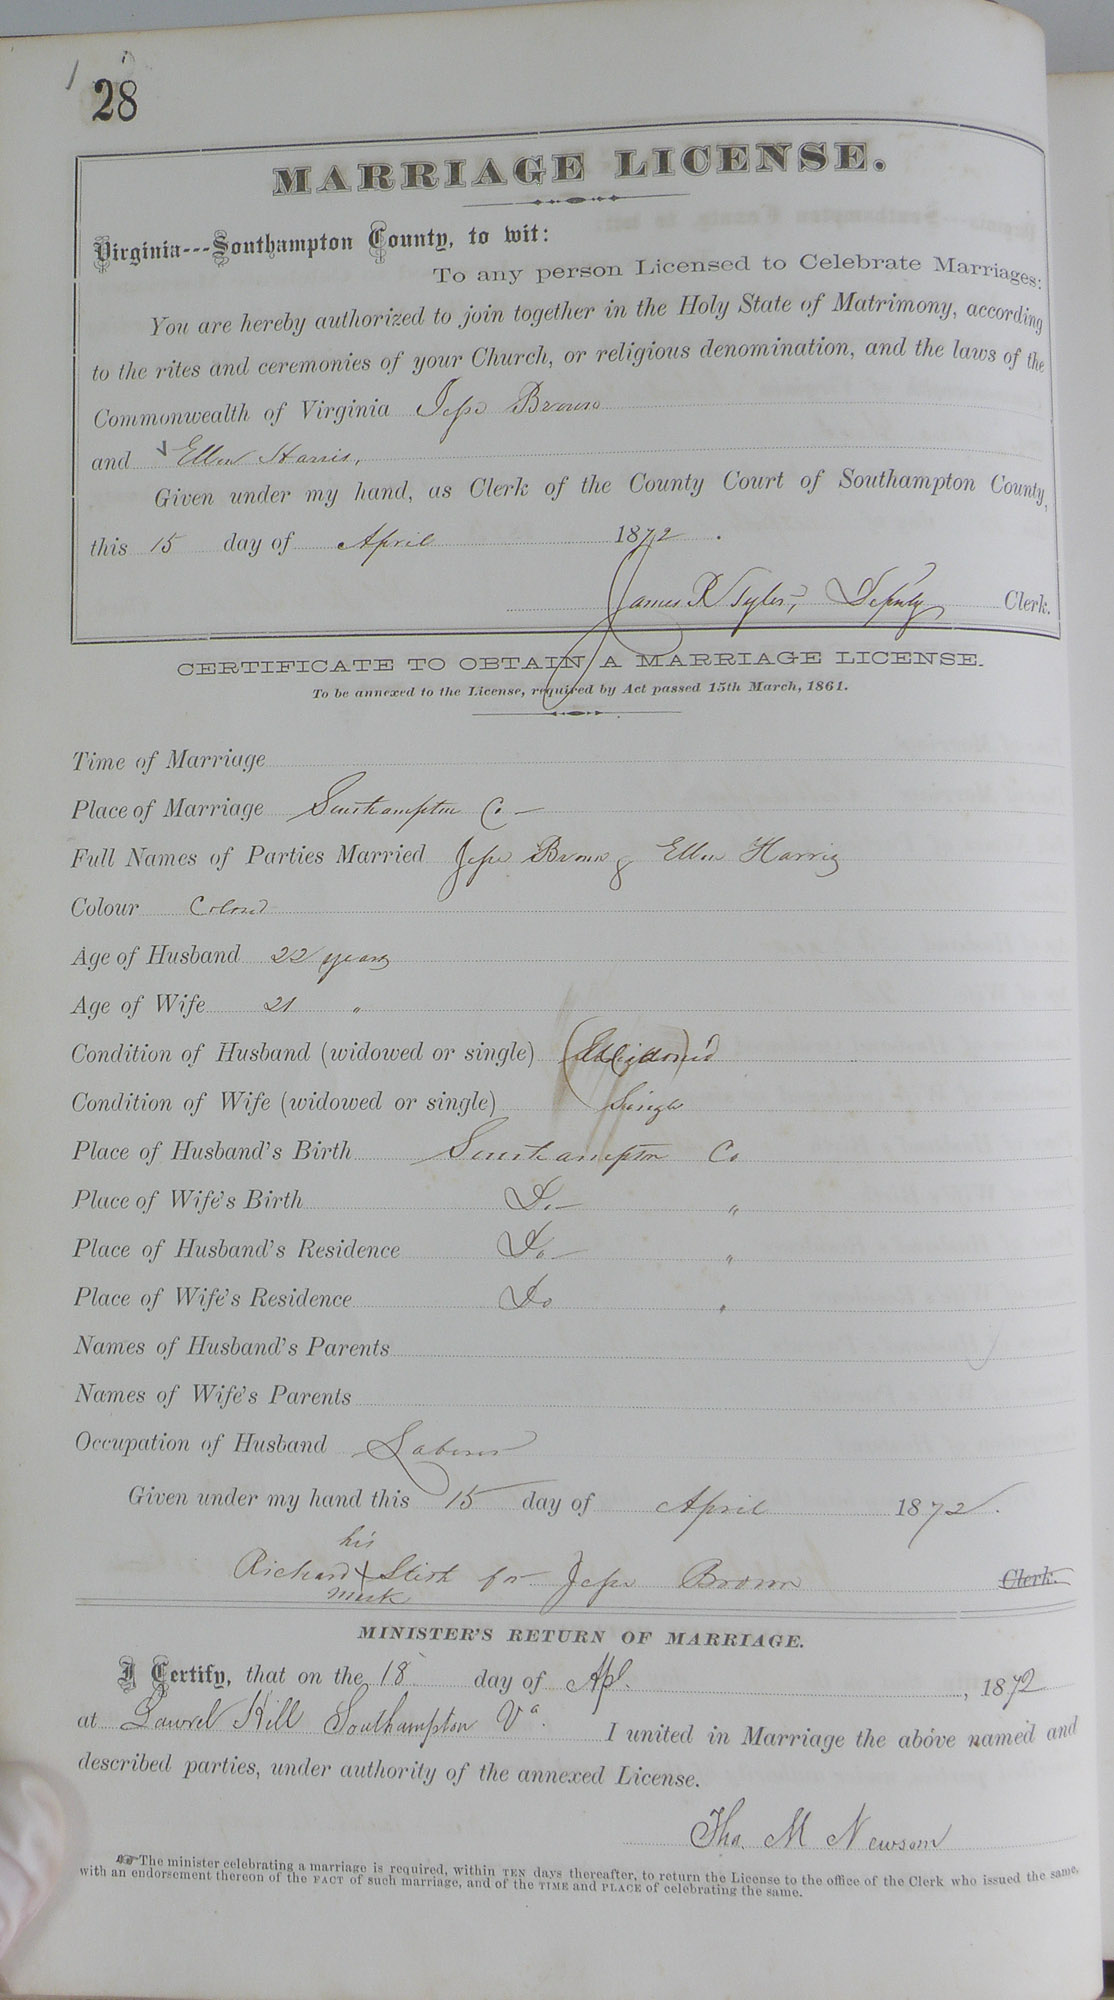 28
MARRIAGE LICENSE.
Virginia---Southampton County, to wit:
To any person Licensed to Celebrate Marriages:
You are hereby authorized to join together in the Holy State of Matrimony, according
to the rites and ceremonies of your Church, or religious denomination, and the laws of the
Commonwealth of Virginia Jesse Brown
and Ellen Harris,
Given under my hand, as Clerk of the County Court of Southampton County,
this 15 day of April 1872.
James R Tyler, Deputy Clerk.
CERTIFICATE TO OBTAIN A MARRIAGE LICENSE.
To be annexed to the License, required by Act passed 15th March, 1861.
Time of Marriage
Place of Marriage Southampton Co
Full Names of Parties Married Jesse Brown & Ellen Harris
Colour Colord
Age of Husband 22 years
Age of Wife 21 "
Condition of Husband (widowed or single) (Widow)d
Condition of Wife (widowed or single) Single
Place of Husband's Birth Southampton Co
Place of Wife's Birth Do "
Place of Husband's Residence Do "
Place of Wife's Residence Do "
Names of Husband's Parents
Names of Wife's Parents
Occupation of Husband Laborer
Given under my hand this 15 day of April 1872.
his
Richard X for Jesse Brown Clerk.
mark
MINISTER'S RETURN OF MARRIAGE.
I Certify, that on the 18 day of Apl. , 1872
at Laurel Hill Southampton Va. I united in Marriage the above named and
described parties, under authority of the annexed License.
Tho. M Newsom
The minister celebrating a marriage is required, within TEN days thereafter, to return the License to the office of the Clerk who issued the same,
with an endorsement thereon of the FACT of such marriage, and of the TIME and PLACE of celebrating the same.